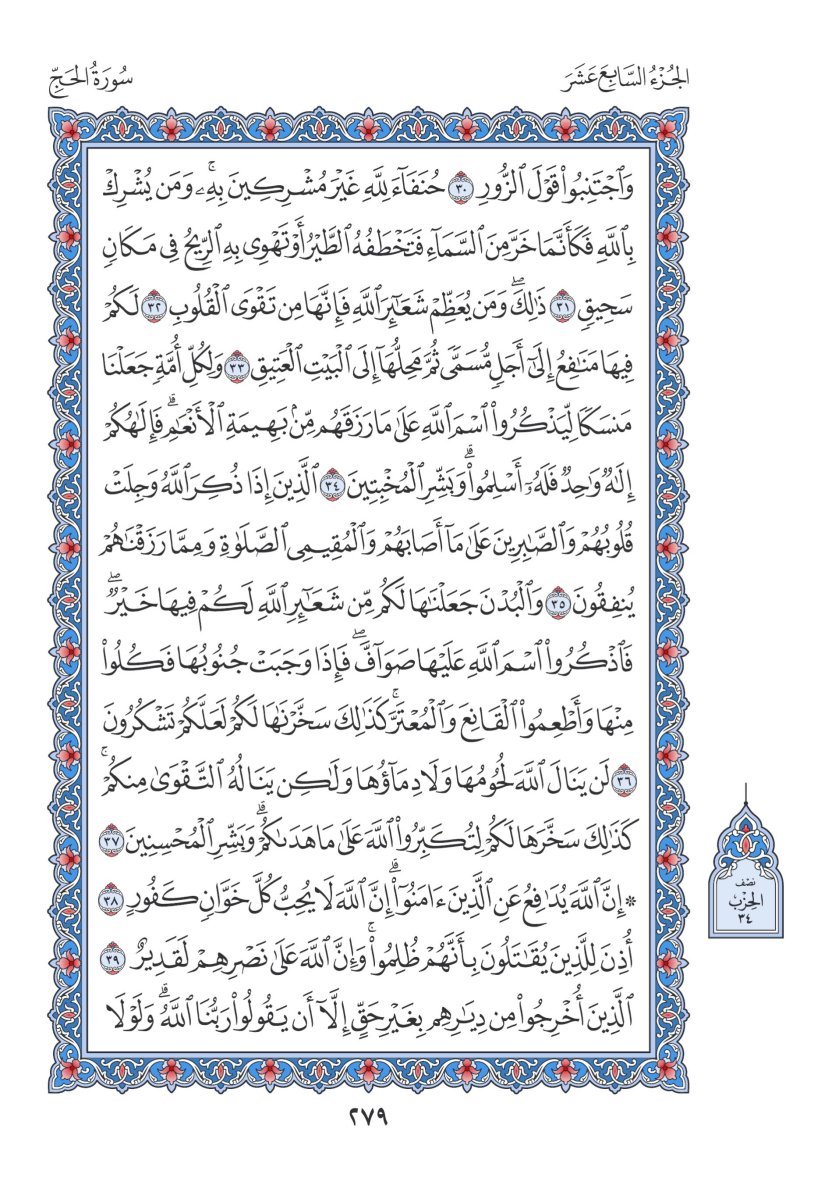 الجُزْءُ السَّابِعَ عَشَرَ
سُورَةُ الحَجِّ
وَٱجْتَنِبُوا۟ قَوْلَ ٱلزُّورِ ٣٠ حُنَفَآءَ لِلَّهِ غَيْرَ مُشْرِكِينَ بِهِۦۚ وَمَن يُشْرِكْ
بِٱللَّهِ فَكَأَنَّمَا خَرَّ مِنَ ٱلسَّمَآءِ فَتَخْطَفُهُ ٱلطَّيْرُ أَوْ تَهْوِى بِهِ ٱلرِّيحُ فِى مَكَانٍ
سَحِيقٍ ٣١ ذَٰلِكَۖ وَمَن يُعَظِّمْ شَعَـٰٓئِرَ ٱللَّهِ فَإِنَّهَا مِن تَقْوَى ٱلْقُلُوبِ ٣٢ لَكُمْ
فِيهَا مَنَـٰفِعُ إِلَىٰٓ أَجَلٍ مُّسَمًّى ثُمَّ مَحِلُّهَآ إِلَى ٱلْبَيْتِ ٱلْعَتِيقِ ٣٣ وَلِكُلِّ أُمَّةٍ جَعَلْنَا
مَنسَكًا لِّيَذْكُرُوا۟ ٱسْمَ ٱللَّهِ عَلَىٰ مَا رَزَقَهُم مِّنۢ بَهِيمَةِ ٱلْأَنْعَـٰمِۗ فَإِلَـٰهُكُمْ
إِلَـٰهٌ وَٰحِدٌ فَلَهُۥٓ أَسْلِمُوا۟ۗ وَبَشِّرِ ٱلْمُخْبِتِينَ ٣٤ ٱلَّذِينَ إِذَا ذُكِرَ ٱللَّهُ وَجِلَتْ
قُلُوبُهُمْ وَٱلصَّـٰبِرِينَ عَلَىٰ مَآ أَصَابَهُمْ وَٱلْمُقِيمِى ٱلصَّلَوٰةِ وَمِمَّا رَزَقْنَـٰهُمْ
يُنفِقُونَ ٣٥ وَٱلْبُدْنَ جَعَلْنَـٰهَا لَكُم مِّن شَعَـٰٓئِرِ ٱللَّهِ لَكُمْ فِيهَا خَيْرٌۖ
فَٱذْكُرُوا۟ ٱسْمَ ٱللَّهِ عَلَيْهَا صَوَآفَّۖ فَإِذَا وَجَبَتْ جُنُوبُهَا فَكُلُوا۟
مِنْهَا وَأَطْعِمُوا۟ ٱلْقَانِعَ وَٱلْمُعْتَرَّۚ كَذَٰلِكَ سَخَّرْنَـٰهَا لَكُمْ لَعَلَّكُمْ تَشْكُرُونَ
٣٦ لَن يَنَالَ ٱللَّهَ لُحُومُهَا وَلَا دِمَآؤُهَا وَلَـٰكِن يَنَالُهُ ٱلتَّقْوَىٰ مِنكُمْۚ
كَذَٰلِكَ سَخَّرَهَا لَكُمْ لِتُكَبِّرُوا۟ ٱللَّهَ عَلَىٰ مَا هَدَىٰكُمْۗ وَبَشِّرِ ٱلْمُحْسِنِينَ ٣٧
* إِنَّ ٱللَّهَ يُدَٰفِعُ عَنِ ٱلَّذِينَ ءَامَنُوٓا۟ۗ إِنَّ ٱللَّهَ لَا يُحِبُّ كُلَّ خَوَّانٍ كَفُورٍ ٣٨
أُذِنَ لِلَّذِينَ يُقَـٰتَلُونَ بِأَنَّهُمْ ظُلِمُوا۟ۚ وَإِنَّ ٱللَّهَ عَلَىٰ نَصْرِهِمْ لَقَدِيرٌ ٣٩
ٱلَّذِينَ أُخْرِجُوا۟ مِن دِيَـٰرِهِم بِغَيْرِ حَقٍّ إِلَّآ أَن يَقُولُوا۟ رَبُّنَا ٱللَّهُۗ وَلَوْلَا
نصف
الحِزْب
٣٤
٢٧٩